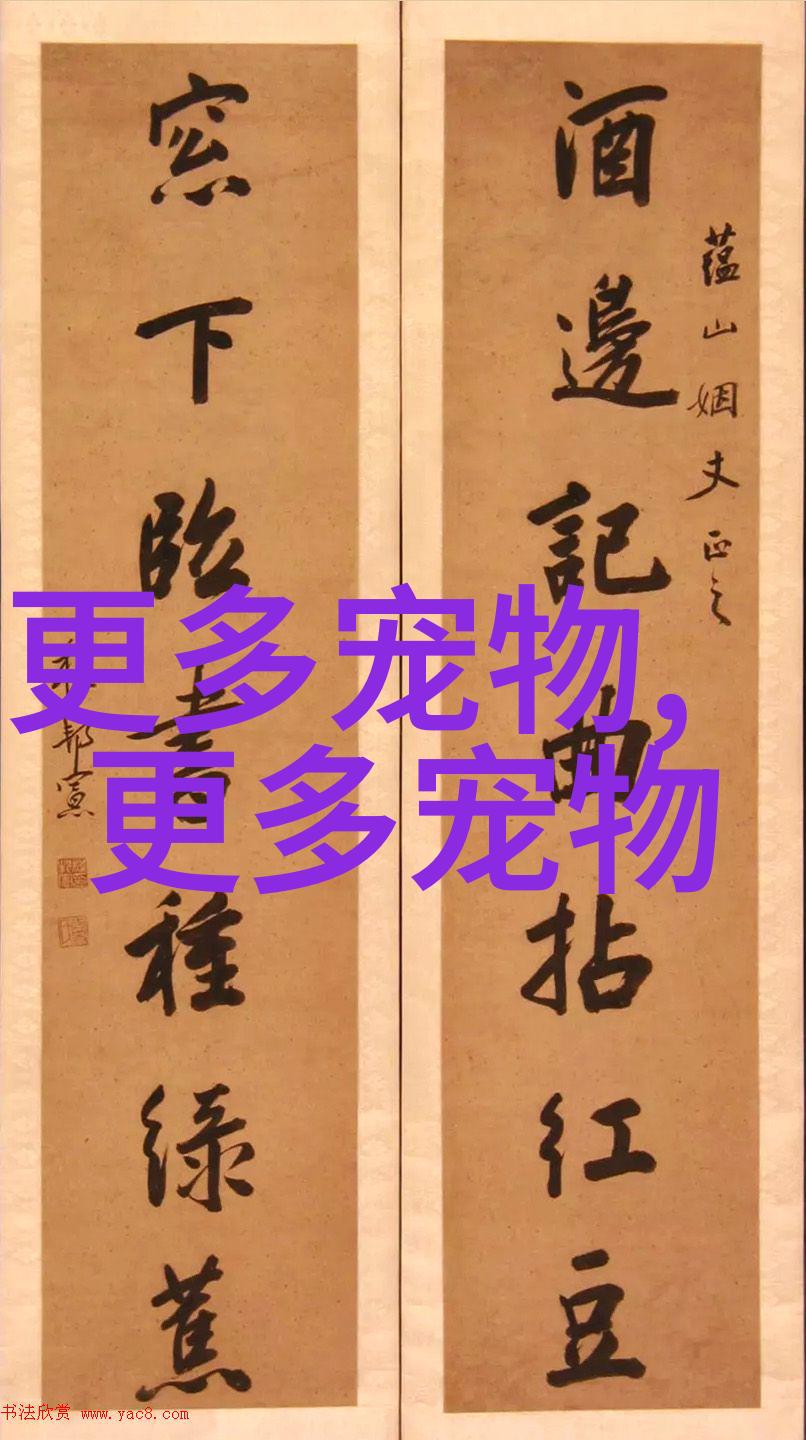 蕴山姻丈正之
酒邊記曲拈紅豆
窓下臨書種綠蕉
更多宠物,
更多宠物
书法欣赏 www.yac8.com